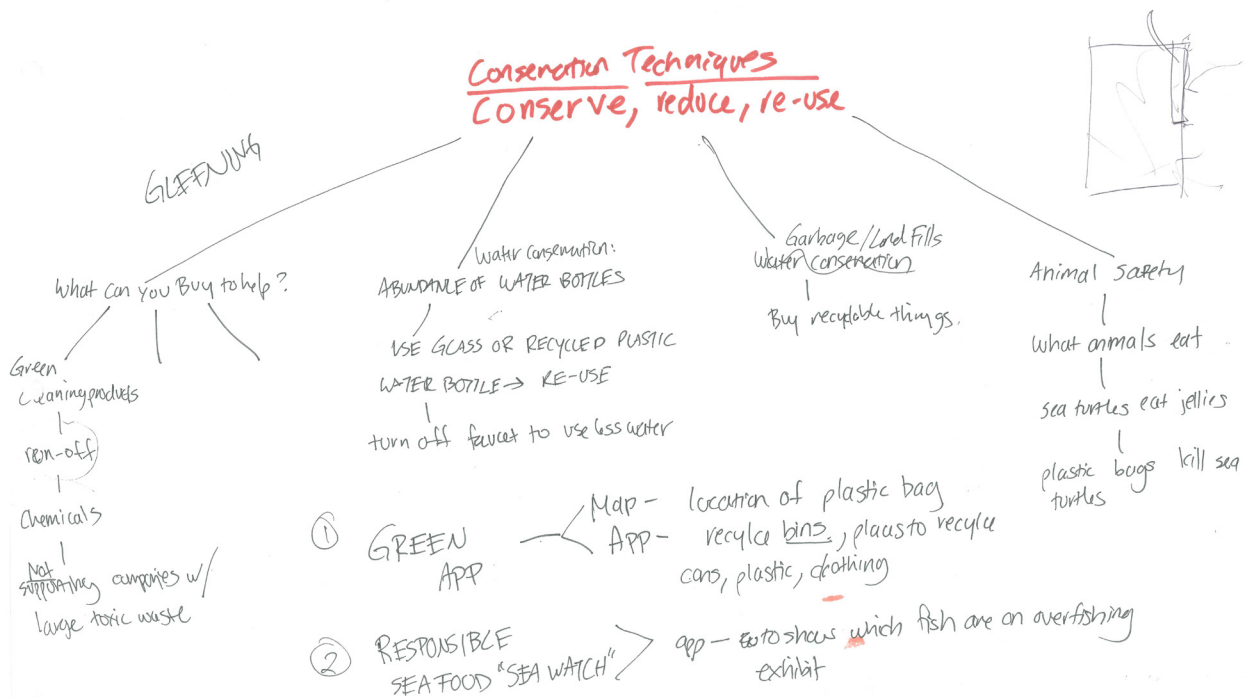 Conservation Techniques
Conserve, reduce, re-use
GLEENING
What can you Buy to help?
Green
cleaning products
run-off
Chemicals
Not
supporting companies w/
large toxic waste
Water Conservation:
ABUNDANCE OF WATER BOTTLES
USE GLASS OR RECYCLED PLASTIC
WATER BOTTLE → RE-USE
turn off faucet to use less water
Garbage/Land Fills
Water conservation
Buy recyclable things.
Animal safety
What animals eat
sea turtles eat jellies
plastic bags kill sea
turtles
1 GREEN
APP
Map - location of plastic bag
App - recylce bins, places to recylce
cans, plastic, clothing
2 RESPONSIBLE
SEAFOOD "SEA WATCH"
app - to show which fish are on overfishing
exhibit